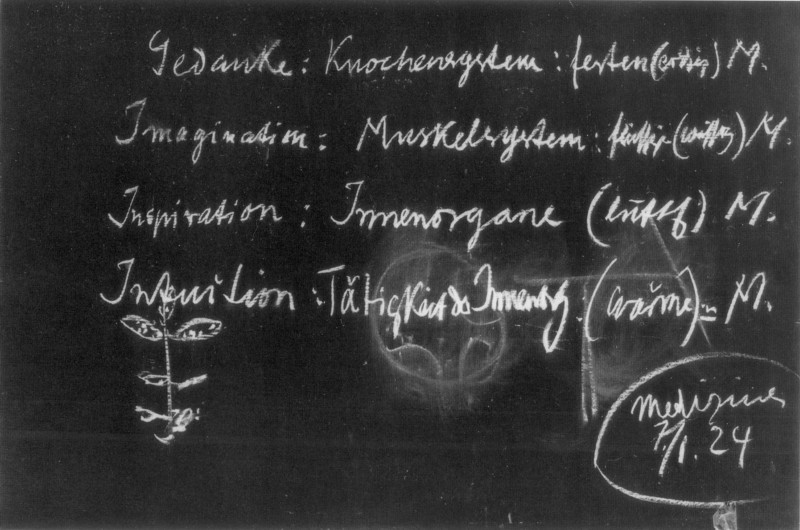 Gedanke: Knochensystem: festen (erdig) M.
Imagination: Muskelsystem: flüssig (wässrig) M.
Inspiration: Innenorgane (luftf) M.
Intuition: Tätigkeit der Innenorg: (Wärme)= M.
Mediziner
7/I. 24